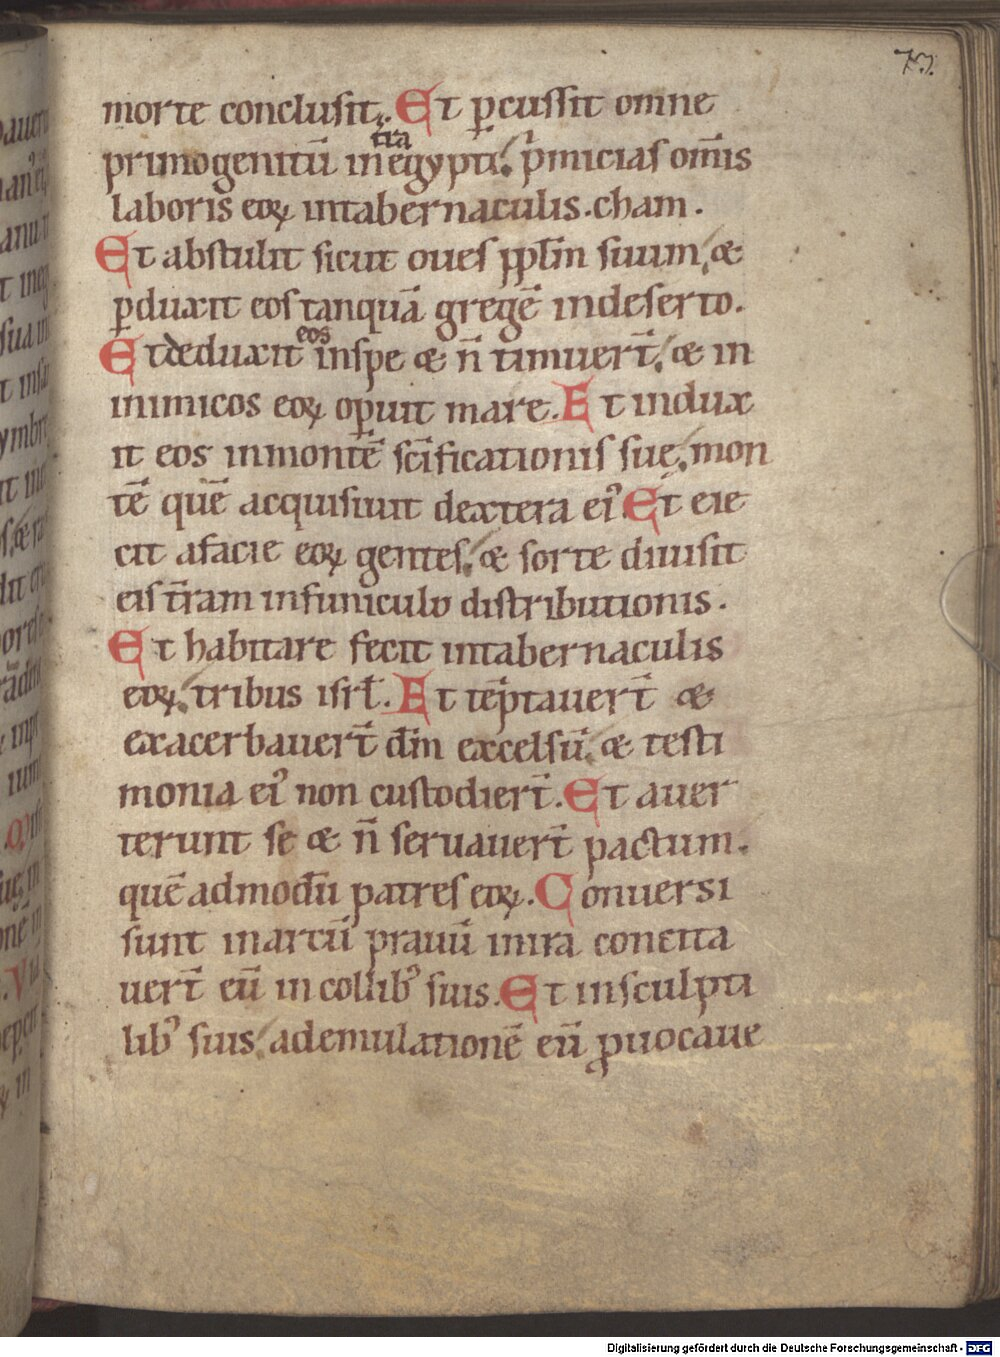 751.
morte conclusit. Et ꝑcussit omne
primogenitū in t̄ra egypti. p̄micias om̄is
laboris eoꝝ intabernaculis.cham.
Et abstulit sicut oues ppl̄m suum, &
ꝑduxit eos tanquā gregē indeserto.
Et deduxit eos inspe & n̄ timuer̄t, & in
inimicos eoꝝ oꝑuit mare. Et indux
it eos inmontē sc̄ificationis suę, mon
tē quē acquisiuit dextera eiꝰ. Et eie
cit afacie eoꝝ gentes, & sorte diuisit
eis t̄ram infuniculo distributionis.
Et habitare fecit intabernaculis
eoꝝ, tribus isrł. Et tēptauer̄t &
exacerbauer̄t dm̄ excelsū, & testi
monia eiꝰ non custodier̄t. Et auer
terunt se & n̄ seruauer̄t pactum.
quē admodū patres eoꝝ. Conuersi
sunt inarcū prauū inira concita
uer̄t eū in collibꝰ suis. Et insculpti
libꝰ suis ademulationē eū ꝓuocaue
Digitalisierung gefördert durch die Deutsche Forschungsgemeinschaft - DFG